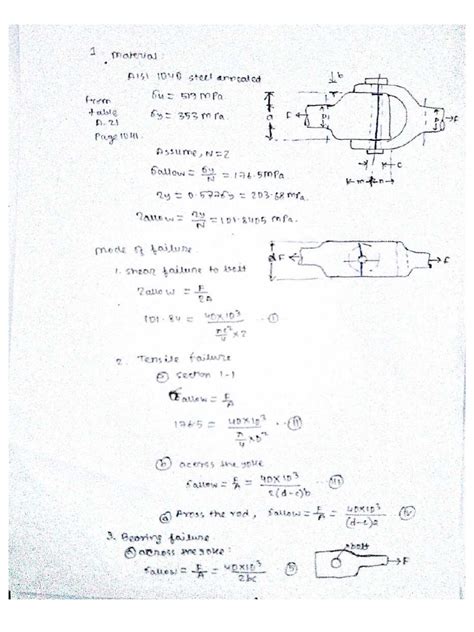 1. material:
AISI 1040 steel annealed
From
table
A.21
Page 1041.
σu = 519 MPa
σy = 353 MPa.
Assume, N=2
σallow = σy/N = 176.5MPa
τy = 0.577σy = 203.68 MPa.
τallow = τy/N = 101.8405 MPa.
b
F
a
D
D
F
c
m
n
Mode of failure.
1. shear failure to bolt
τallow = F/2A
101.84 = 40×10³ / (πc²/4 ×2) ... (i)
d
F
F
2. Tensile failure
(a) section 1-1
σallow = F/A
176.5 = 40×10³ / (π/4 × D²) ... (ii)
(b) across the yoke
σallow = F/A = 40×10³ / 2(d-c)b (iii)
(c) Across the rod, σallow = F/A = 40×10³ / (d-c)a (iv)
3. Bearing failure
(a) across the yoke:
σallow = F/A = 40×10³ / 2bc (v)
bolt
F